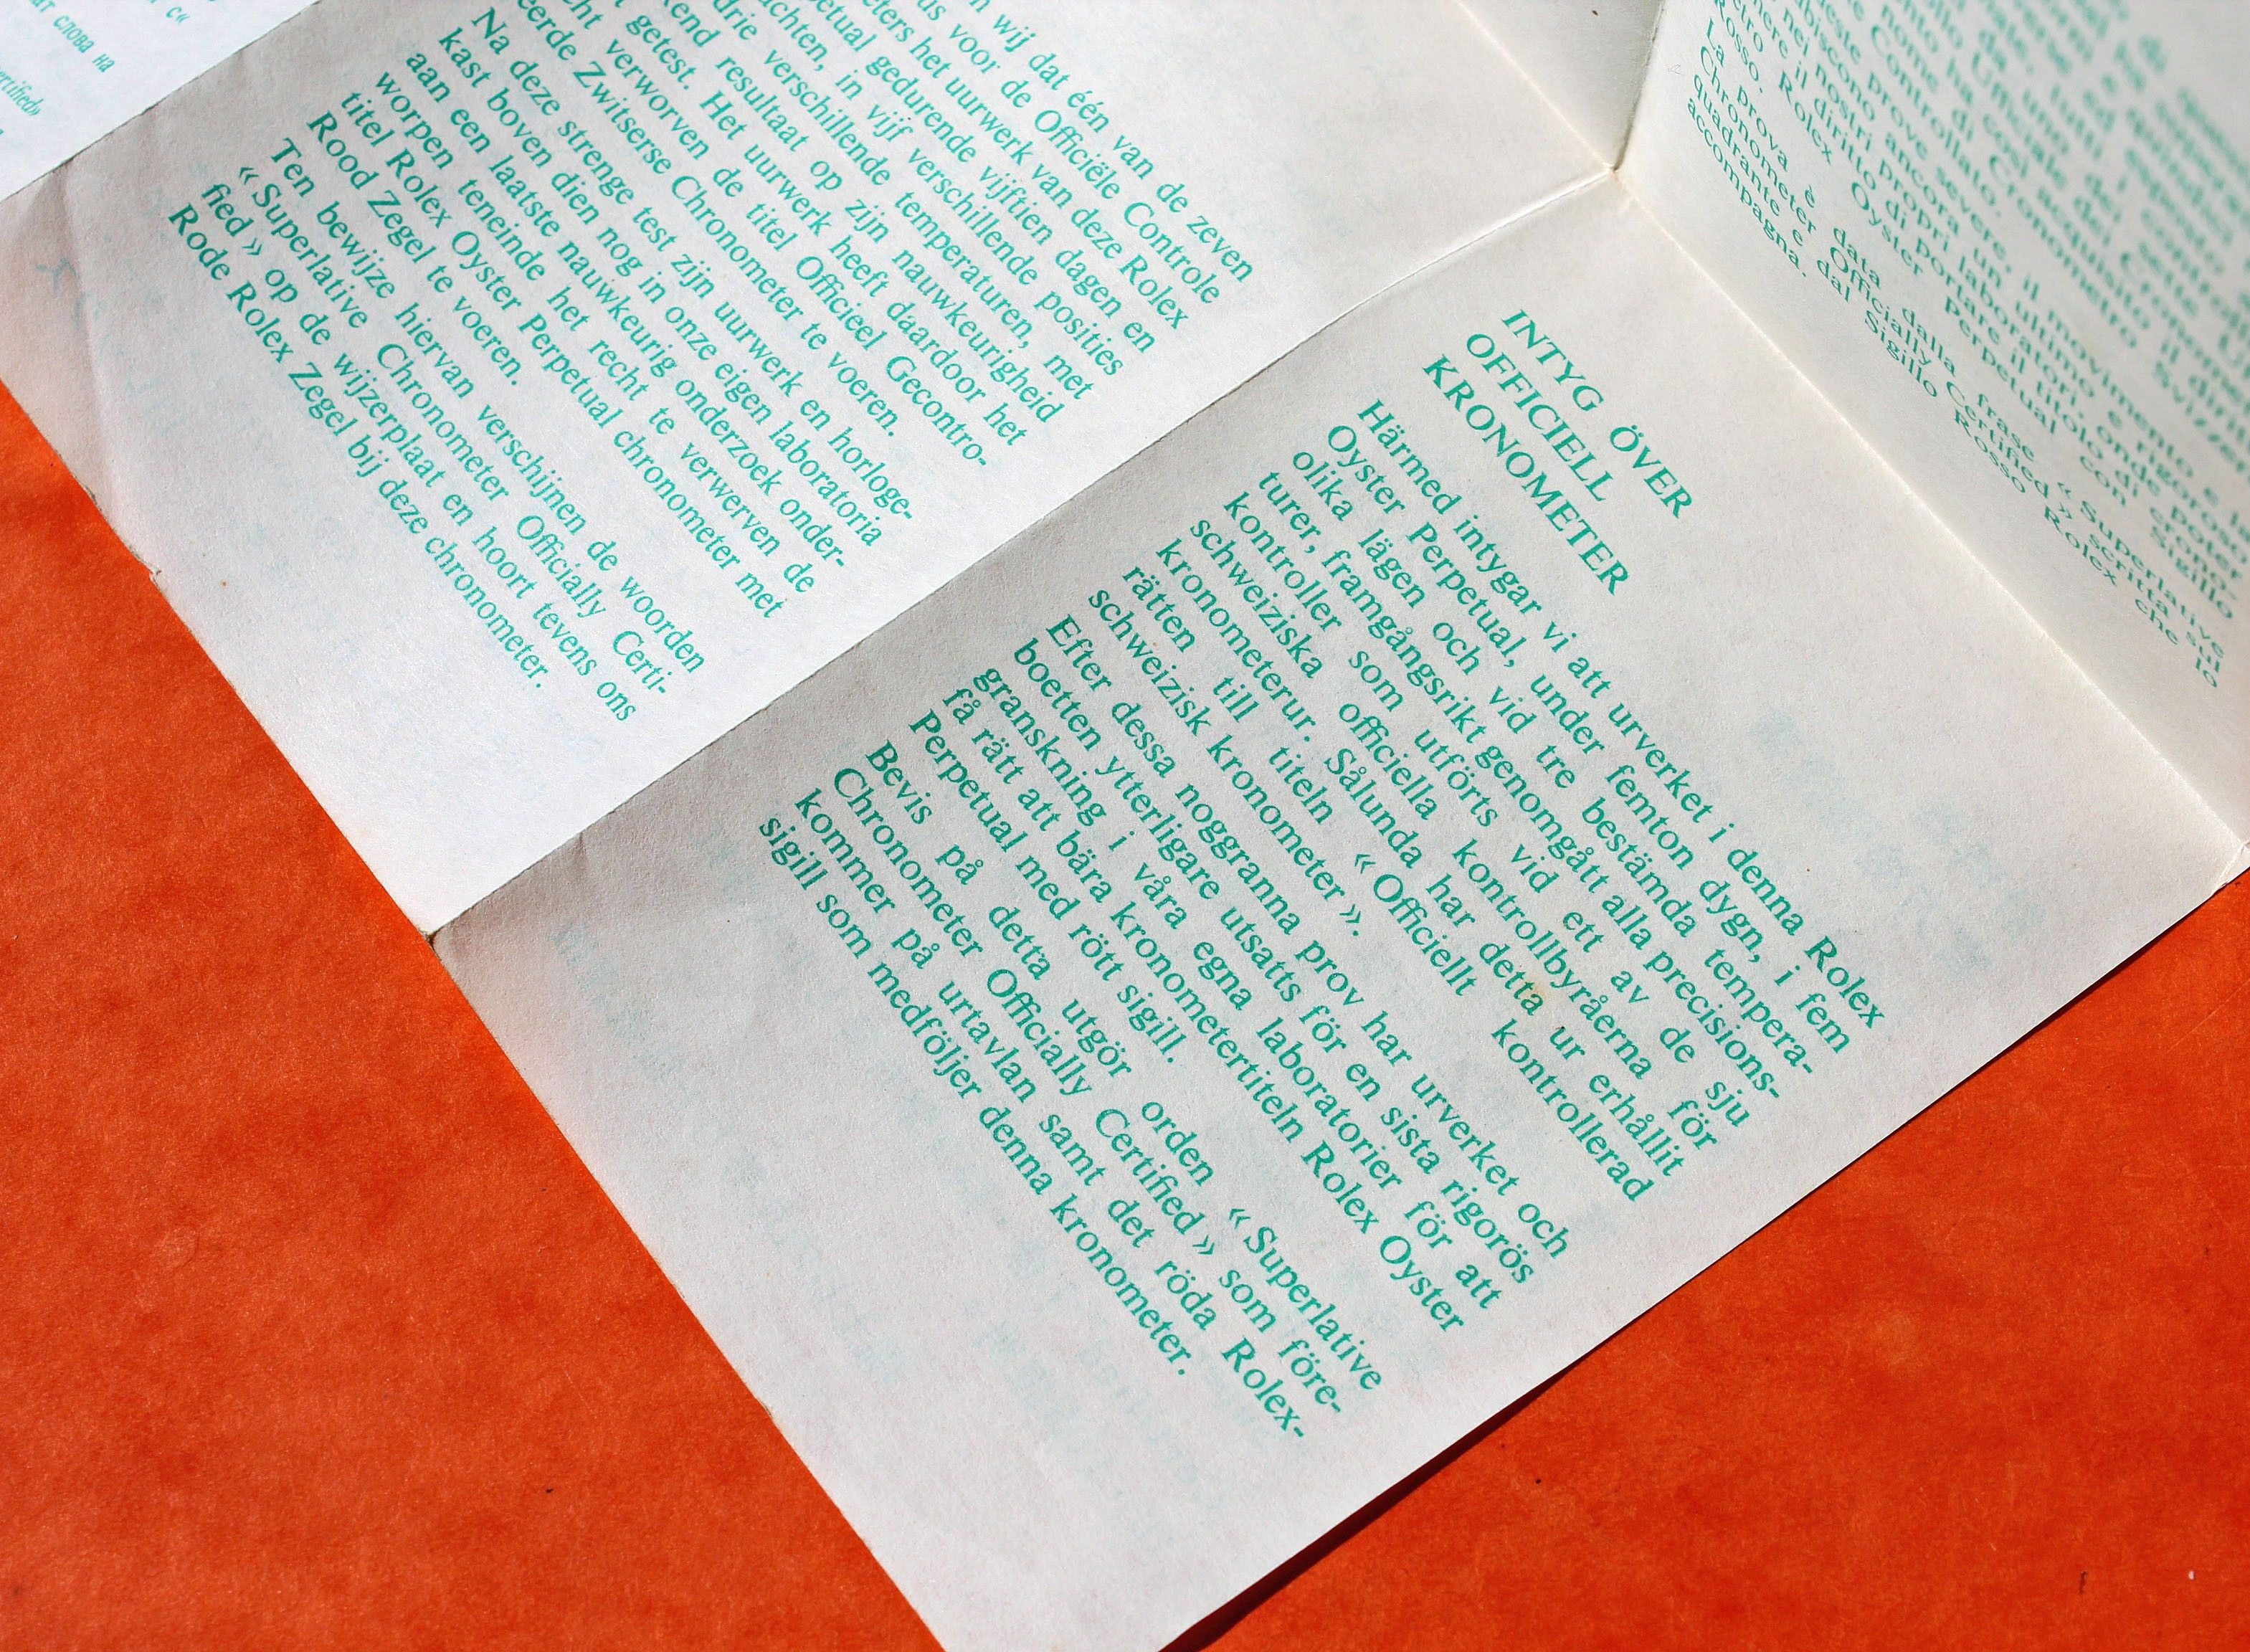 ат слова на
с«
rtified»
n wij dat één van de zeven
us voor de Officiële Controle
eters het uurwerk van deze Rolex
etual gedurende vijftien dagen en
achten, in vijf verschillende posities
drie verschillende temperaturen, met
end resultaat op zijn nauwkeurigheid
getest. Het uurwerk heeft daardoor het
cht verworven de titel Officieel Gecontro-
eerde Zwitserse Chronometer te voeren.
Na deze strenge test zijn uurwerk en horloge-
kast boven dien nog in onze eigen laboratoria
aan een laatste nauwkeurig onderzoek onder-
worpen teneinde het recht te verwerven de
titel Rolex Oyster Perpetual chronometer met
Rood Zegel te voeren.
Ten bewijze hiervan verschijnen de woorden
« Superlative Chronometer Officially Certi-
fied » op de wijzerplaat en hoort tevens ons
Rode Rolex Zegel bij deze chronometer.
INTYG ÖVER
OFFICIELL
KRONOMETER
Härmed intygar vi att urverket i denna Rolex
Oyster Perpetual, under femton dygn, i fem
olika lägen och vid tre bestämda tempera-
turer, framgångsrikt genomgått alla precisions-
kontroller som utförts vid ett av de sju
schweiziska officiella kontrollbyråerna för
kronometerur. Sålunda har detta ur erhållit
rätten till titeln « Officiellt kontrollerad
schweizisk kronometer ».
Efter dessa noggranna prov har urverket och
boetten ytterligare utsatts för en sista rigorös
granskning i våra egna laboratorier för att
få rätt att bära kronometertiteln Rolex Oyster
Perpetual med rött sigill.
Bevis på detta utgör orden « Superlative
Chronometer Officially Certified » som före-
kommer på urtavlan samt det röda Rolex-
sigill som medföljer denna kronometer.
nome di Cronometro
Controllato.
ueste prove severe, il movimento e la
ubiscono ancora un ultimo e rigoroso
nei nostri propri laboratori, onde poter
il diritto di portare il titolo di crono-
etro Rolex Oyster Perpetual con Sigillo
Rosso.
La prova è data dalla frase « Superlative
Chronometer Officially Certified » scritta sul
quadrante e dal Sigillo Rosso Rolex che lo
accompagna.